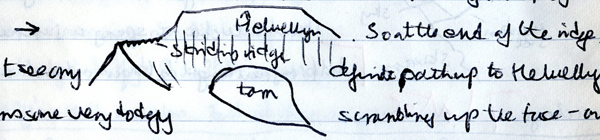 Helvellyn . So at the end of the ridge
striding definite path up to Helvellyn
some very dodgy tarn scrambling up the face -